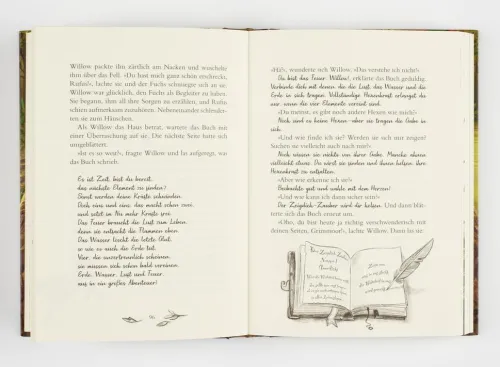 Willow packte ihn zärtlich am Nacken und wuschelte
ihm über das Fell. »Du hast mich ganz schön erschreckt,
Rufus!«, lachte sie und der Fuchs schmiegte sich an sie.
Willow war glücklich, den Fuchs als Begleiter zu haben.
Sie begann, ihm all ihre Sorgen zu erzählen, und Rufus
schien aufmerksam zuzuhören. Nebeneinander schlender-
ten sie zum Häuschen.
Als Willow das Haus betrat, wartete das Buch mit
einer Überraschung auf sie. Die nächste Seite hatte sich
umgeblättert.
»Ist es so weit?«, fragte Willow und las aufgeregt, was
das Buch schrieb.
Es ist Zeit, bist du bereit,
das nächste Element zu finden?
Sonst werden deine Kräfte schwinden.
Doch eins und eins, das macht schon zwei,
und setzt im Nu mehr Kräfte frei.
Das Feuer braucht die Luft zum Leben,
denn sie entfacht die Flammen eben.
Das Wasser löscht die letzte Glut,
so wie es auch die Erde tut.
Vier, die unzertrennlich scheinen,
sie müssen sich schon bald vereinen.
Erde, Wasser, Luft und Feuer,
auf in ein großes Abenteuer!
»Hä?«, wunderte sich Willow. »Das verstehe ich nicht!«
Du bist das Feuer, Willow!, erklärte das Buch geduldig.
Verbünde dich mit denen, die die Luft, das Wasser und die
Erde in sich tragen. Vollständige Hexenkraft erlangst du
nur, wenn die vier Elemente vereint sind.
»Du meinst, es gibt noch andere Hexen wie mich?«
Noch sind es keine Hexen – aber sie tragen die Gabe in
sich.
»Und wie finde ich sie? Werden sie sich mir zeigen?
Suchen sie vielleicht auch nach mir?«
Noch wissen sie nichts von ihrer Gabe. Manche ahnen
vielleicht etwas. Du wirst sie finden und ihnen helfen, ihre
Hexenkraft zu entfalten.
»Aber wie erkenne ich sie?«
Beobachte gut und wähle mit dem Herzen!
»Und wie kann ich ihnen helfen?«
Der Zeigdich-Zauber wird dir helfen. Und dann blät-
terte sich das Buch erneut um.
»Oho, du bist heute ja richtig verschwenderisch mit
deinen Seiten, Grimmoor!«, lachte Willow. Dann las sie: